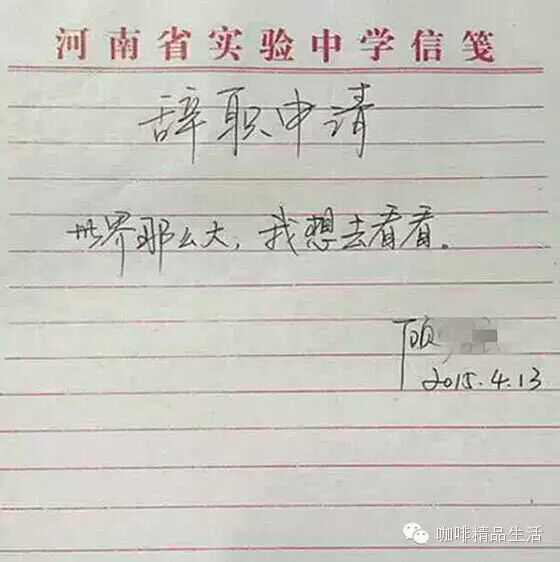 河南省实验中学信笺
辞职申请
世界那么大，我想去看看。
顾
2015.4.13
咖啡精品生活